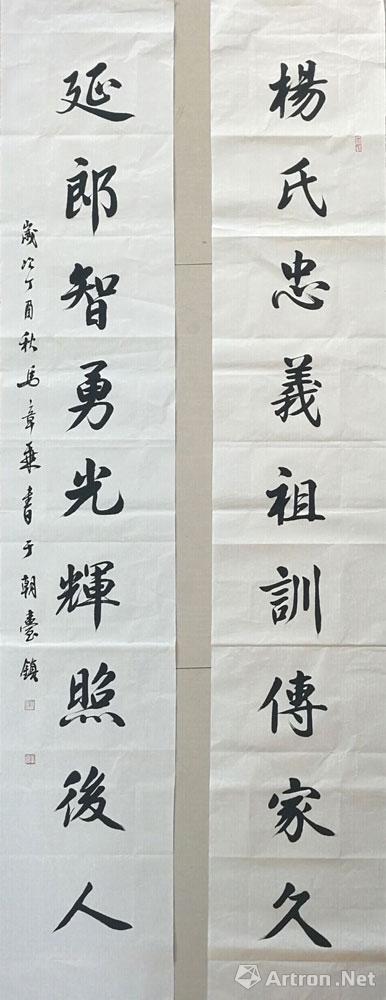 楊氏忠義祖訓傳家久
延郎智勇光輝照後人
歲次丁酉秋馬章乘書于朝臺鎮
Artron.Net